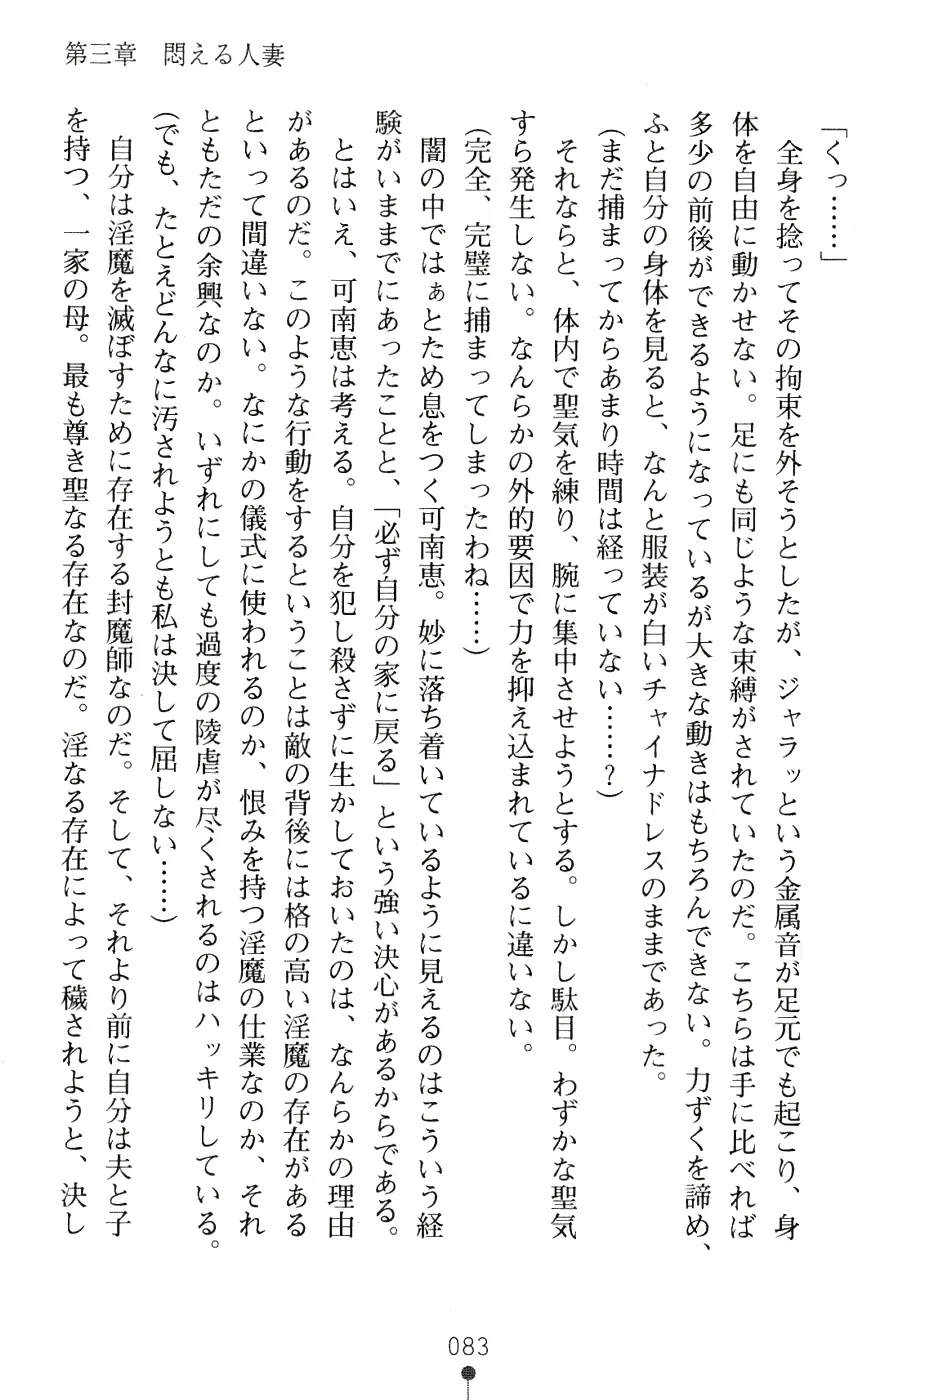 第三章　悶える人妻
「くっ……」
　全身を捻ってその拘束を外そうとしたが、ジャラッという金属音が足元でも起こり、身
体を自由に動かせない。足にも同じような束縛がされていたのだ。こちらは手に比べれば
多少の前後ができるようになっているが大きな動きはもちろんできない。力ずくを諦め、
ふと自分の身体を見ると、なんと服装が白いチャイナドレスのままであった。
(まだ捕まってからあまり時間は経っていない……？)
　それならと、体内で聖気を練り、腕に集中させようとする。しかし駄目。わずかな聖気
すら発生しない。なんらかの外的要因で力を抑え込まれているに違いない。
(完全、完璧に捕まってしまったわね……)
　闇の中ではぁとため息をつく可南恵。妙に落ち着いているように見えるのはこういう経
験がいままでにあったことと、「必ず自分の家に戻る」という強い決心があるからである。
　とはいえ、可南恵は考える。自分を犯し殺さずに生かしておいたのは、なんらかの理由
があるのだ。このような行動をするということは敵の背後には格の高い淫魔の存在がある
といって間違いない。なにかの儀式に使われるのか、恨みを持つ淫魔の仕業なのか、それ
ともただの余興なのか。いずれにしても過度の陵虐が尽くされるのはハッキリしている。
(でも、たとえどんなに汚されようとも私は決して屈しない……)
　自分は淫魔を滅ぼすために存在する封魔師なのだ。そして、それより前に自分は夫と子
を持つ、一家の母。最も尊き聖なる存在なのだ。淫なる存在によって穢されようと、決し
083